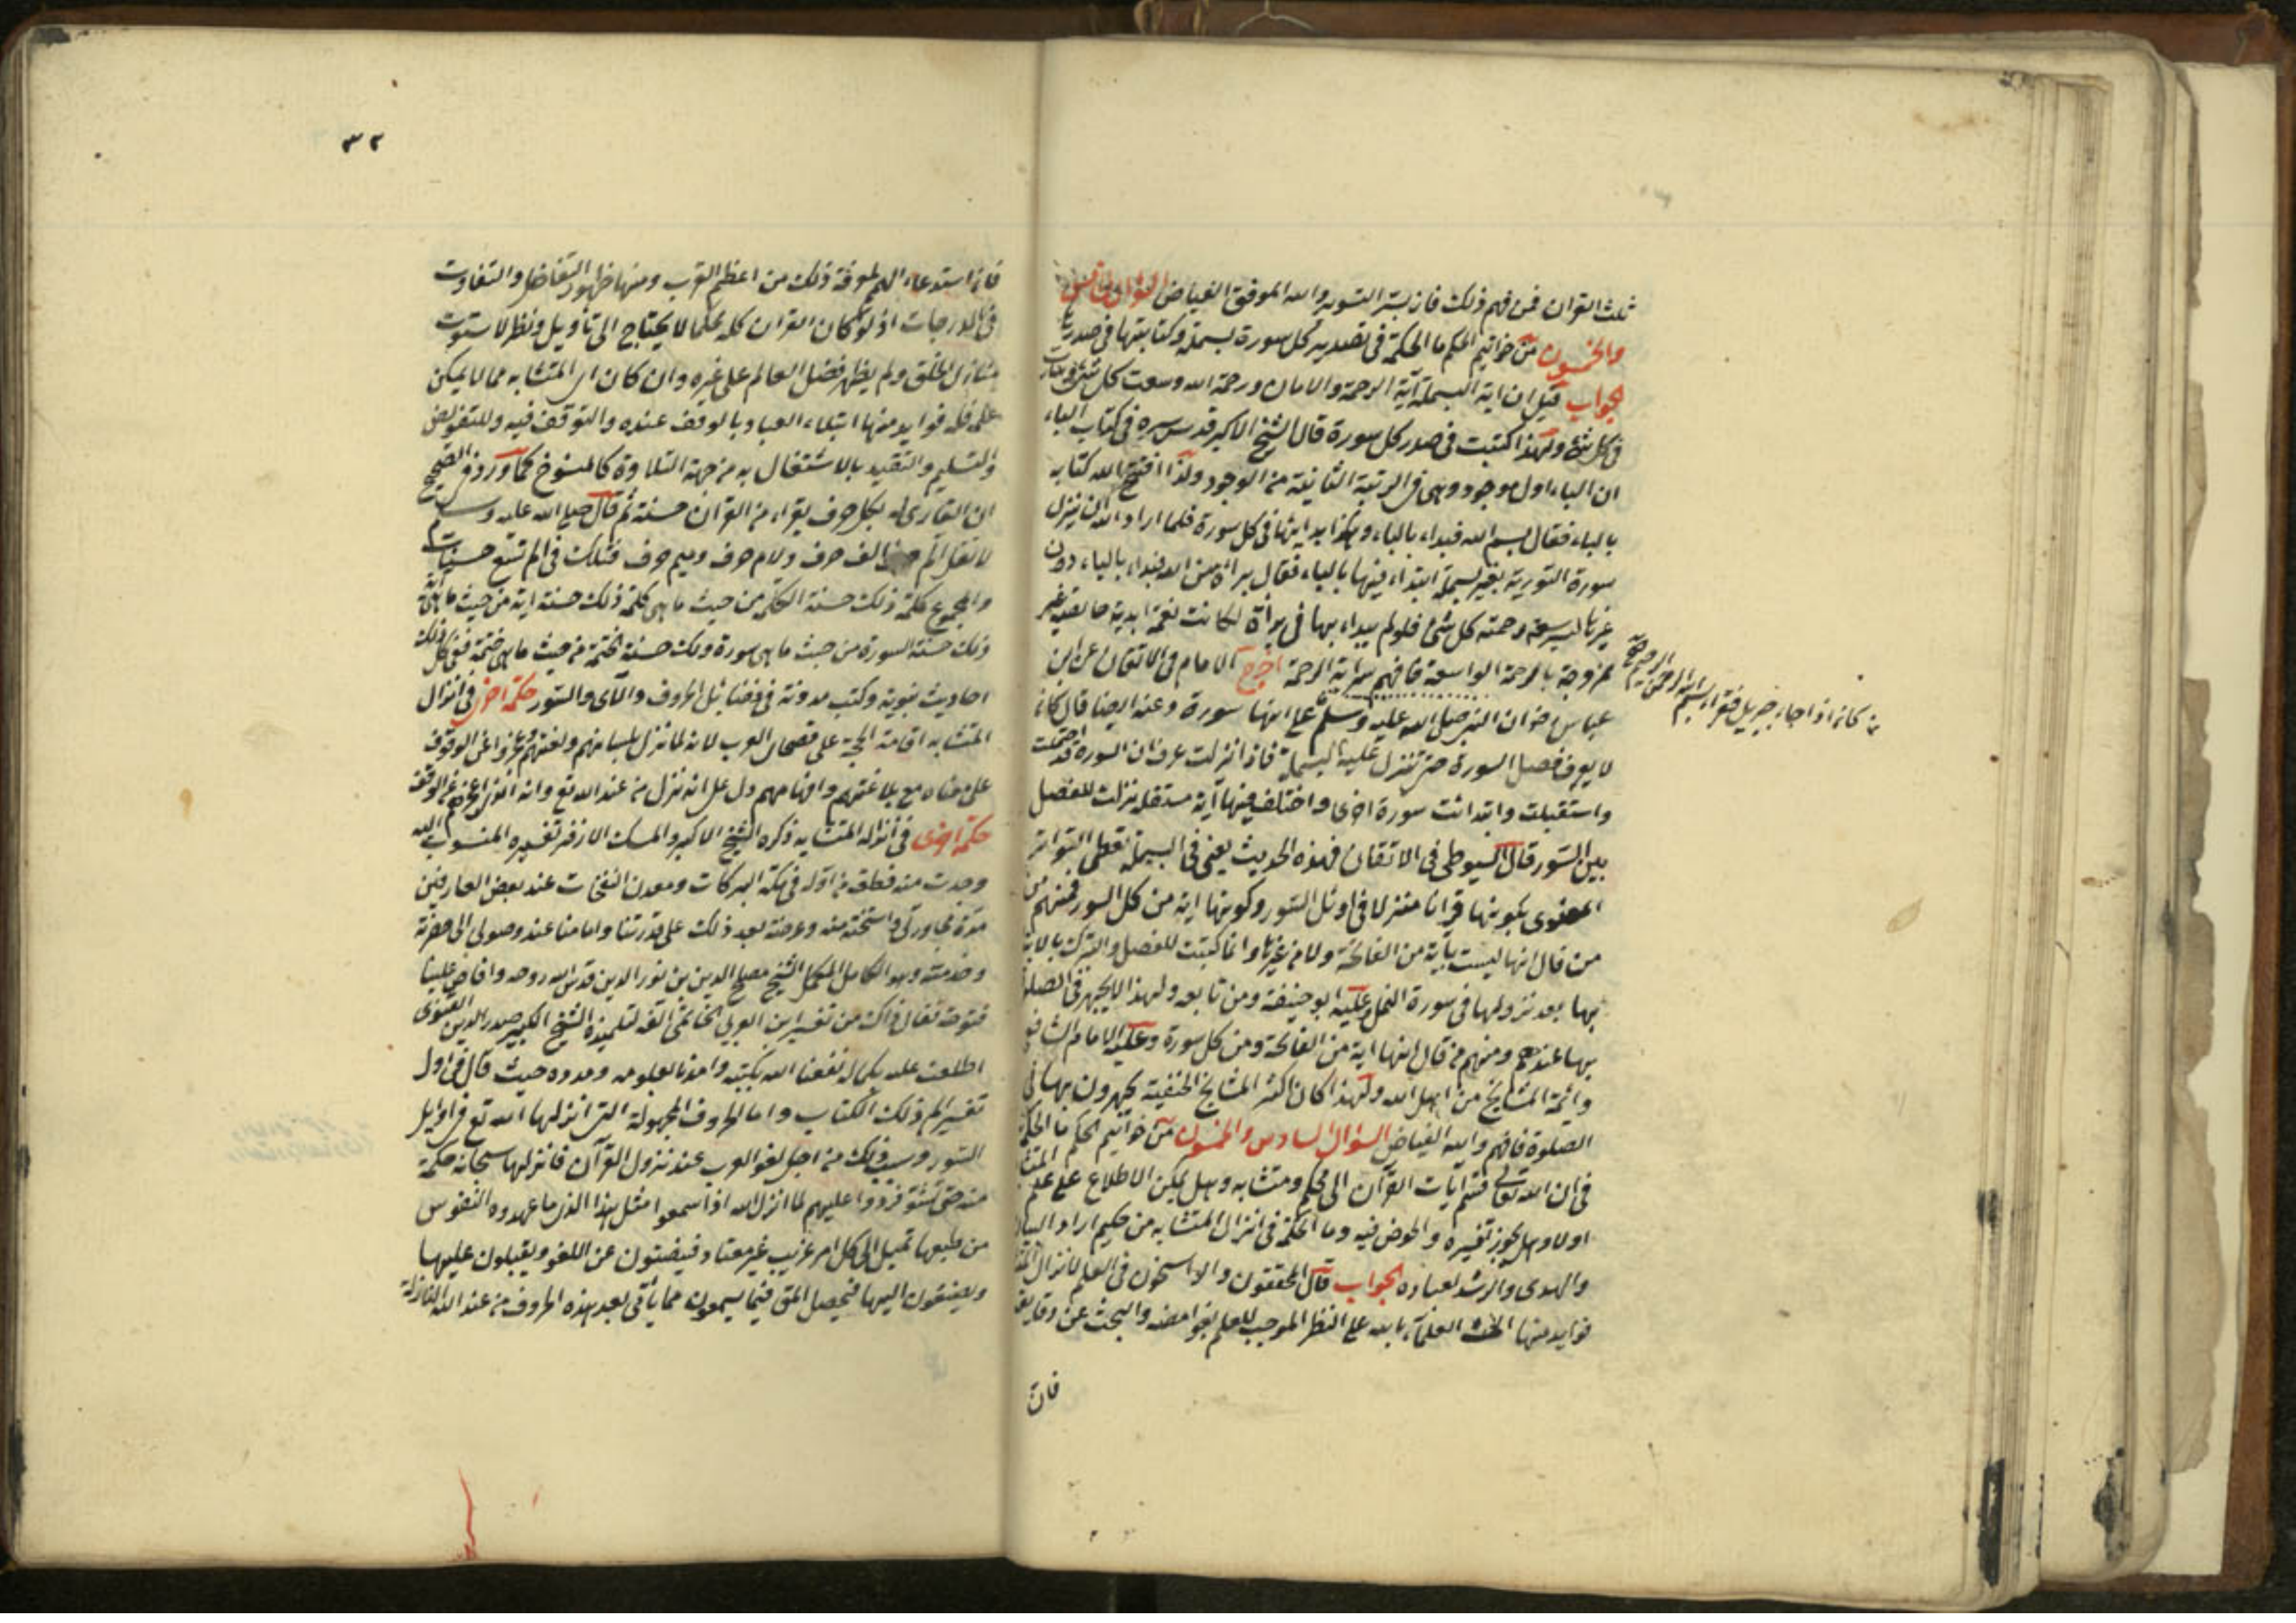 ثلث القران فمن فهم ذلك فاز بستر السورة والله الموفق الفياض السؤال
والخمسون من خواتيم الحكم ما الحكمة فى تصدير كل سورة بسملة وكتابتها فى صدرها
الجواب قيل ان اية البسملة آية الرحمة والامان ورحمة الله وسعت كل شئ
فى كل شئ ولهذا كتبت فى صدر كل سورة قال الشيخ الاكبر قدس سره فى كتاب الباء
ان الباء اول موجود وهى فى الرتبة الثانية من الوجود ولذا افتتح الله كتابه
بالباء فقال بسم الله فبداء بالباء وهكذا بدايتها فى كل سورة فلما اراد الله ان ينزل
سورة التوبة بغير بسملة ابتداء فيها بالباء فقال براة من الله فبداء بالباء دون
غيرها ليسع رحمته كل شئ فلو لم يبداء بها فى براة لكانت نقمة ابدية خالصة غير
ممزوجة بالرحمة الواسعة فافهم سراية الرحمة اخرج الامام فى الاتقان عن ابن
عباس رض ان النبى صلى الله عليه وسلم على انها سورة وعنه ايضا قال كان
لا يعرف فصل السورة حتى تنزل عليه البسملة فاذا نزلت عرف ان السورة قد ختمت
واستقبلت وابتدائت سورة اخرى واختلف فيها آية مستقلة نزلت للفصل
بين السور قال السيوطى فى الاتقان فهذه الحديث يعنى فى البسملة تعطى التواتر
المعنوى بكونها قرانا منزلا فى اوئل السور وكونها اية من كل السور فمنهم من
من قال انها ليست بآية من الفاتحة ولا من غيرها وانما كتبت للفصل والتبرك بالابتداء
بها بعد نزولها فى سورة النمل وعليه ابو حنيفة ومن تابعه ولهذا لا يجهر فى الصلوة
بها عندهم ومنهم من قال انها اية من الفاتحة ومن كل سورة وعليه الامام الشافعى
وائمة المشايخ من اهل الله ولهذا كان اكثر المشايخ الحنفية يجهرون بها فى
الصلوة فافهم والله الفياض السؤال السادس والخمسون من خواتيم الحكم ما الحكمة
فى ان الله تعالى قسم آيات القرآن الى محكم ومتشابه وهل يمكن الاطلاع على علم المتشابه
اولا وهل يجوز تفسيره والخوض فيه وما الحكمة فى انزال المتشابه من حكيم اراد البيان
والهدى والرشد لعباده الجواب قال المحققون والراسخون فى العلم لانزال المتشابه
فوايد منها الحث العلماء بالله على النظر الموجب للعلم بغوامضه والبحث عن دقايقه
فان
كانه اذا جاء جبريل فقراء بسم الله الرحمن الرحيم
٣٢
فان استدعاء الهمم لمعرفة ذلك من اعظم القرب ومنها ظهور التفاضل والتفاوت
فى الدرجات اذ لو كان القران كله محكما لا يحتاج الى تأويل ونظر لاستوت
منازل الخلق ولم يظهر فضل العالم على غيره وان كان المتشابه مما لا يمكن
علمه فله فوايد منها ابتلاء العباد بالوقف عنده والتوقف فيه وللتفويض
والتسليم والتقييد بالاشتغال به من جهة التلاوة كالمنسوخ كما ورد فى الصحيح
ان القارى له بكل حرف يقراء من القران حسنة ثم قال صلى الله عليه وسلم
لا تقل الم الف حرف ولام حرف وميم حرف فتلك فى الم تسع حسنات
والمجموع كلمة ذلك حسنة الكلمة من حيث ما هى كلمة ذلك حسنة اية من حيث ما هى آية
وذلك حسنة السورة من حيث ما هى سورة وتلك حسنة الختمة من حيث ما هى ختمة ففى كل ذلك
احاديث نبوية وكتب مدونة فى فضائل الحروف والآى والسور حكمة اخرى فى انزال
المتشابه اقامة الحجة على فصحاء العرب لانه لما نزل بلسانهم ولغتهم وعجزوا عن الوقوف
على معناه مع بلاغتهم وافهامهم دل على انه نزل من عند الله تع وانه الذى اعجزهم عن الوقف
حكمة اخرى فى انزاله المتشابه ذكره الشيخ الاكبر والمسك الازفر تفسيره المنسوب اليه
وجدت منه قطعة من اوله فى مكة البركات ومعدن النفحات عند بعض العارفين
مدة مجاورتى واستنخته منه وعرضته بعد ذلك على قدوتنا وامامنا عند وصولى الى حضرته
وخدمته وهو الكامل المكمل الشيخ مصلح الدين بن نور الدين قدس الله روحه وافاض علينا
فتوحه فقال ذاك من تفسير ابن العربى الحاتمى الفه لتلميذه الشيخ الكبير صدر الدين القنوى
اطلعت عليه بكماله نفعنا الله بكتبه وامدنا بعلومه ومدده حيث قال فى اول
تفسير الم ذلك الكتاب واما الحروف المجهولة التى انزلها الله تع فى اوايل
السور وسبب ذلك من اجل لغو العرب عند نزول القرآن فانزلها سبحانه حكمة
منه حتى تتوفر دواعيهم لما انزل الله اذا سمعوا مثل هذا الذى ما عهدوه النفوس
من طبعها تميل الى كل امر غريب غير معتاد فينصتون عن اللغو ويقبلون عليها
ويصغون اليها فيحصل المق فيما يسمعون مما يأتى بعد هذه الحروف من عند الله النازلة